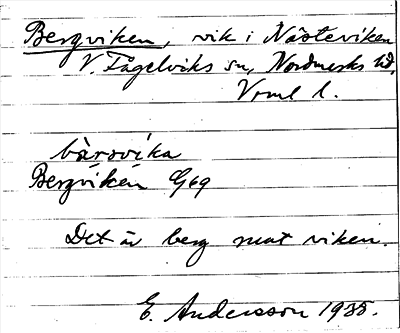 Bergviken, vik i Nästeviken
V. Fågelviks sn, Nordmarks hd,
Vrml l.
bärrvika
Bergviken G69
Det är berg mot viken.
E. Andersson 1935.